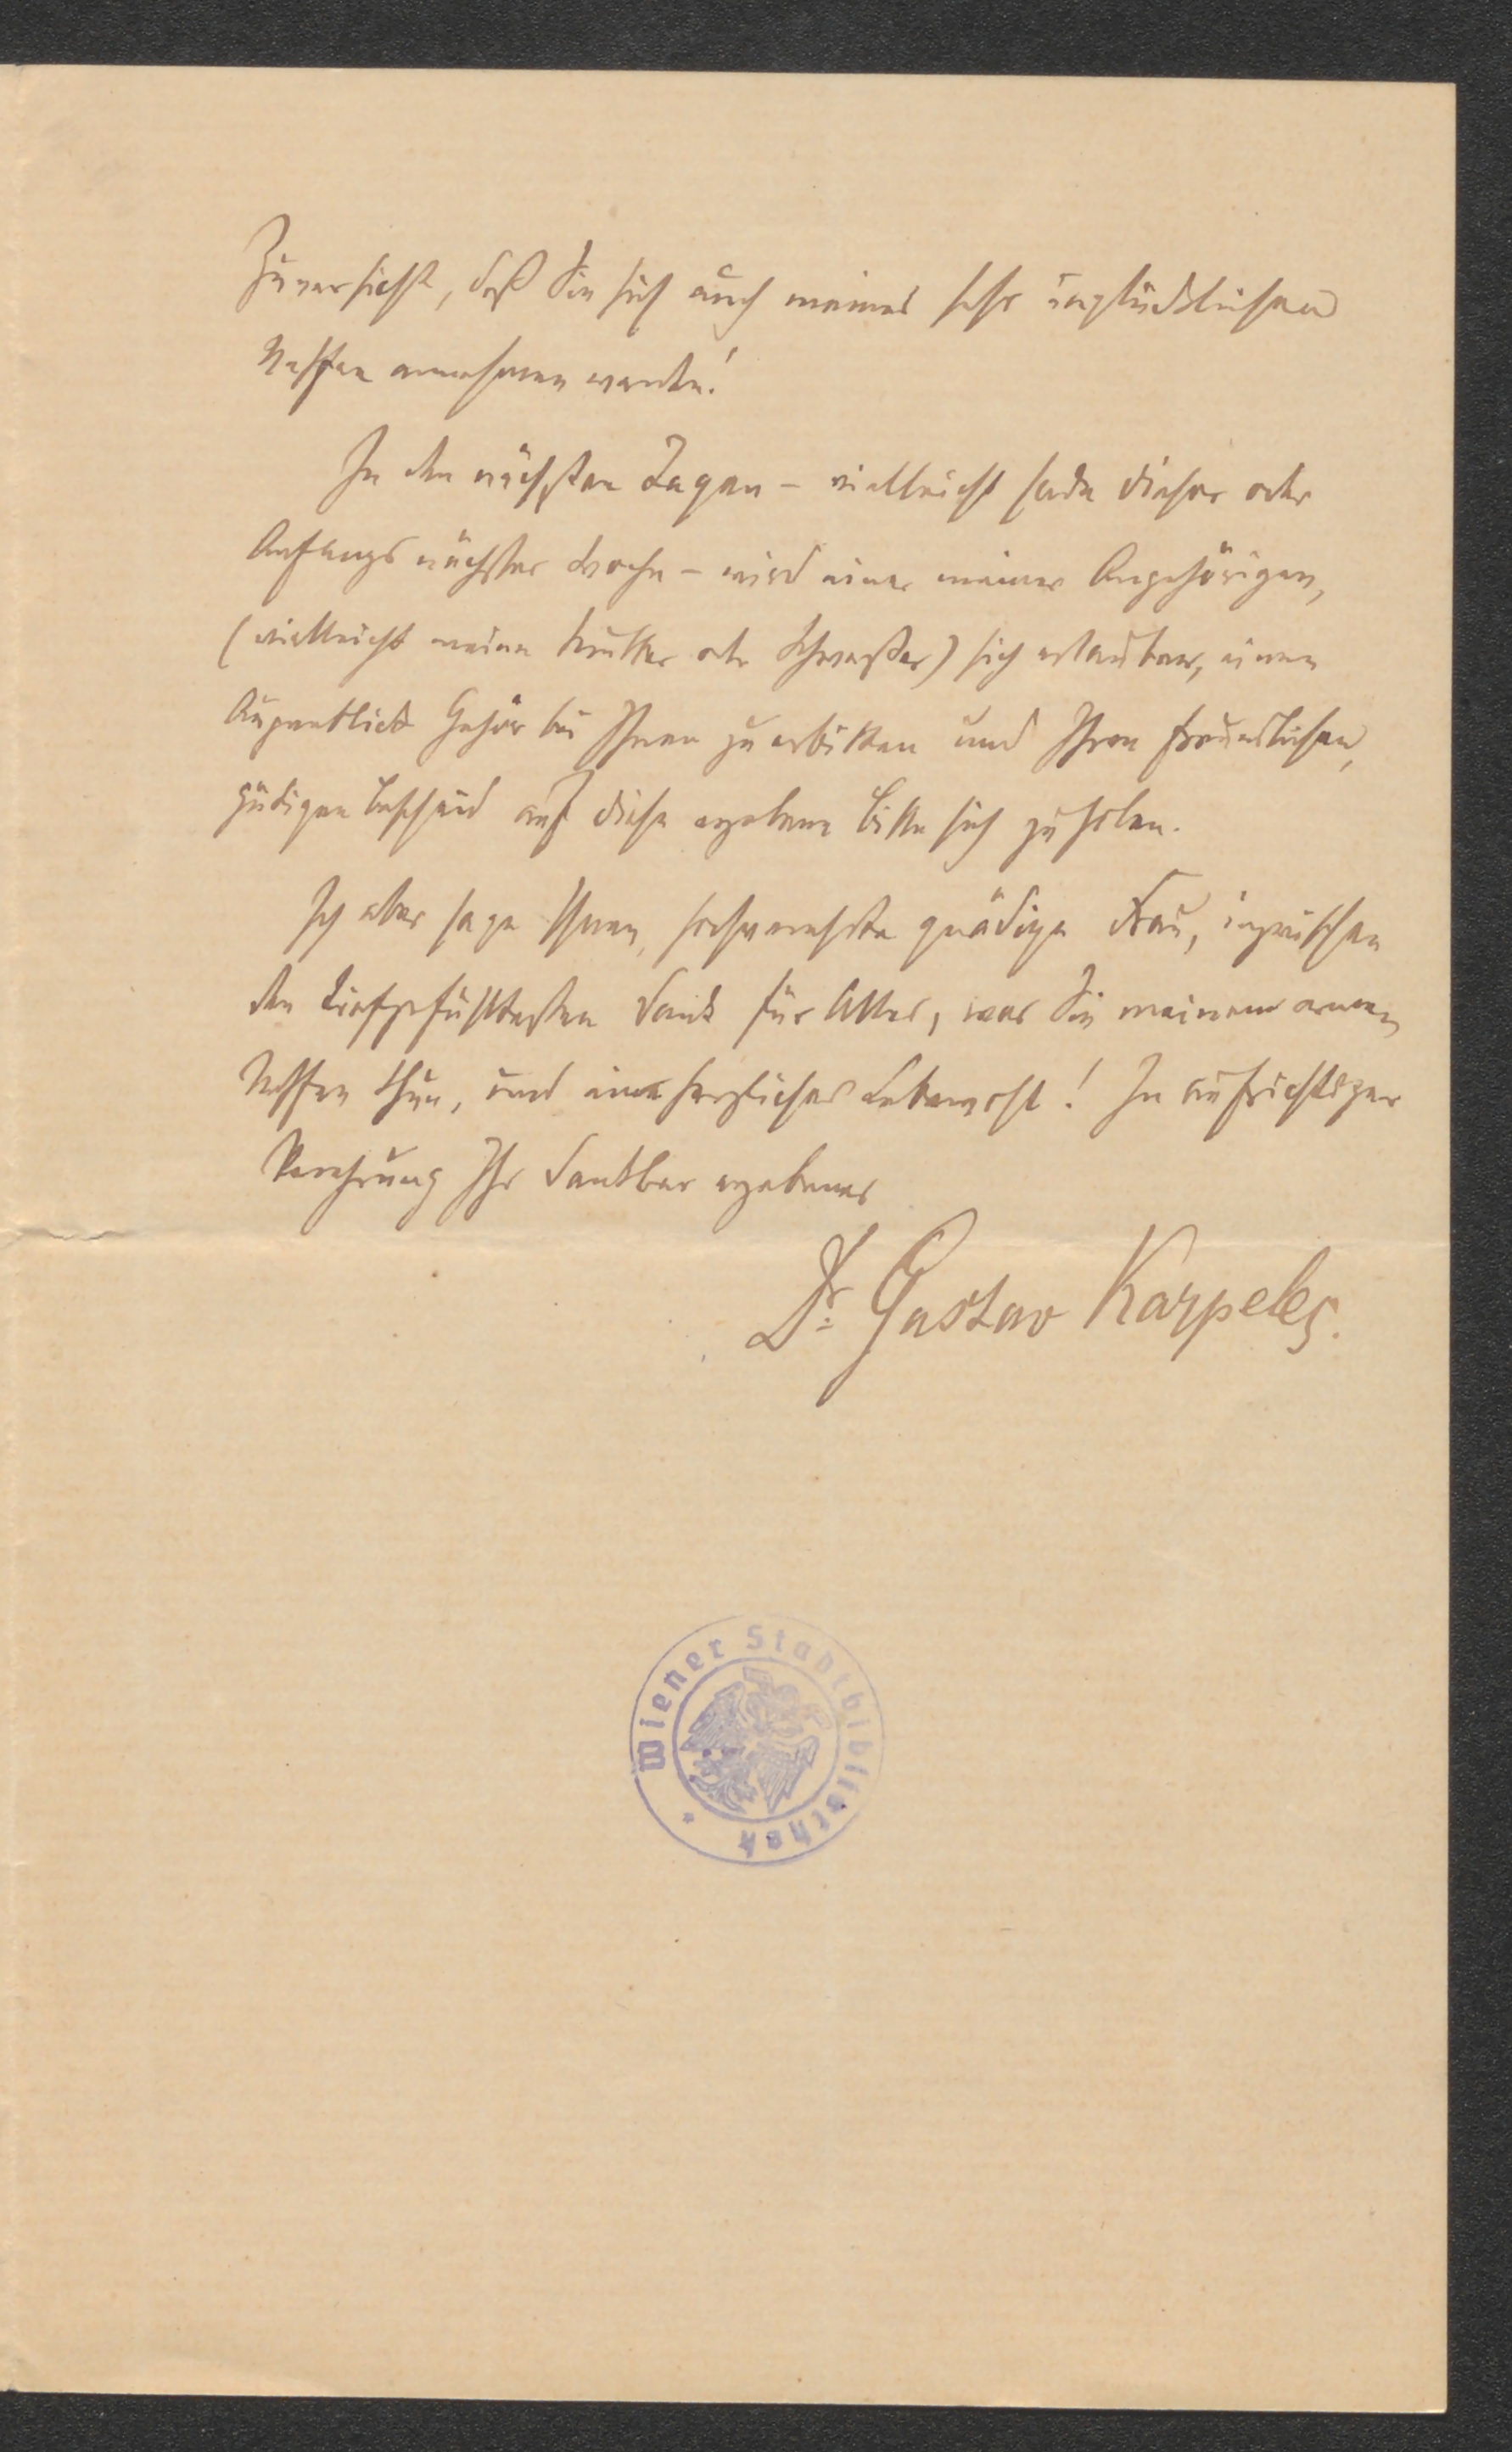 Zuversicht, daß Sie sich auch meines sehr unglücklichen
Neffen annehmen werden!
In den nächsten Tagen – vielleicht Ende dieser oder
Anfangs nächster Woche – wird einer meiner Angehörigen,
(vielleicht meine Mutter oder Schwester) sich erlauben, einen
Augenblick Gehör bei Ihnen zu erbitten und Ihren freundlichen,
gütigen Bescheid auf diese ergebene Bitte sich zu holen.
Ich aber sage Ihnen, hochverehrte gnädige Frau, inzwischen
den tiefgefühltesten Dank für Alles, was Sie meinem armen
Neffen thun, und ein herzliches Lebewohl! In aufrichtiger
Verehrung Ihr dankbar ergebener
Dr. Gustav Karpeles.
Wiener Stadtbibliothek *